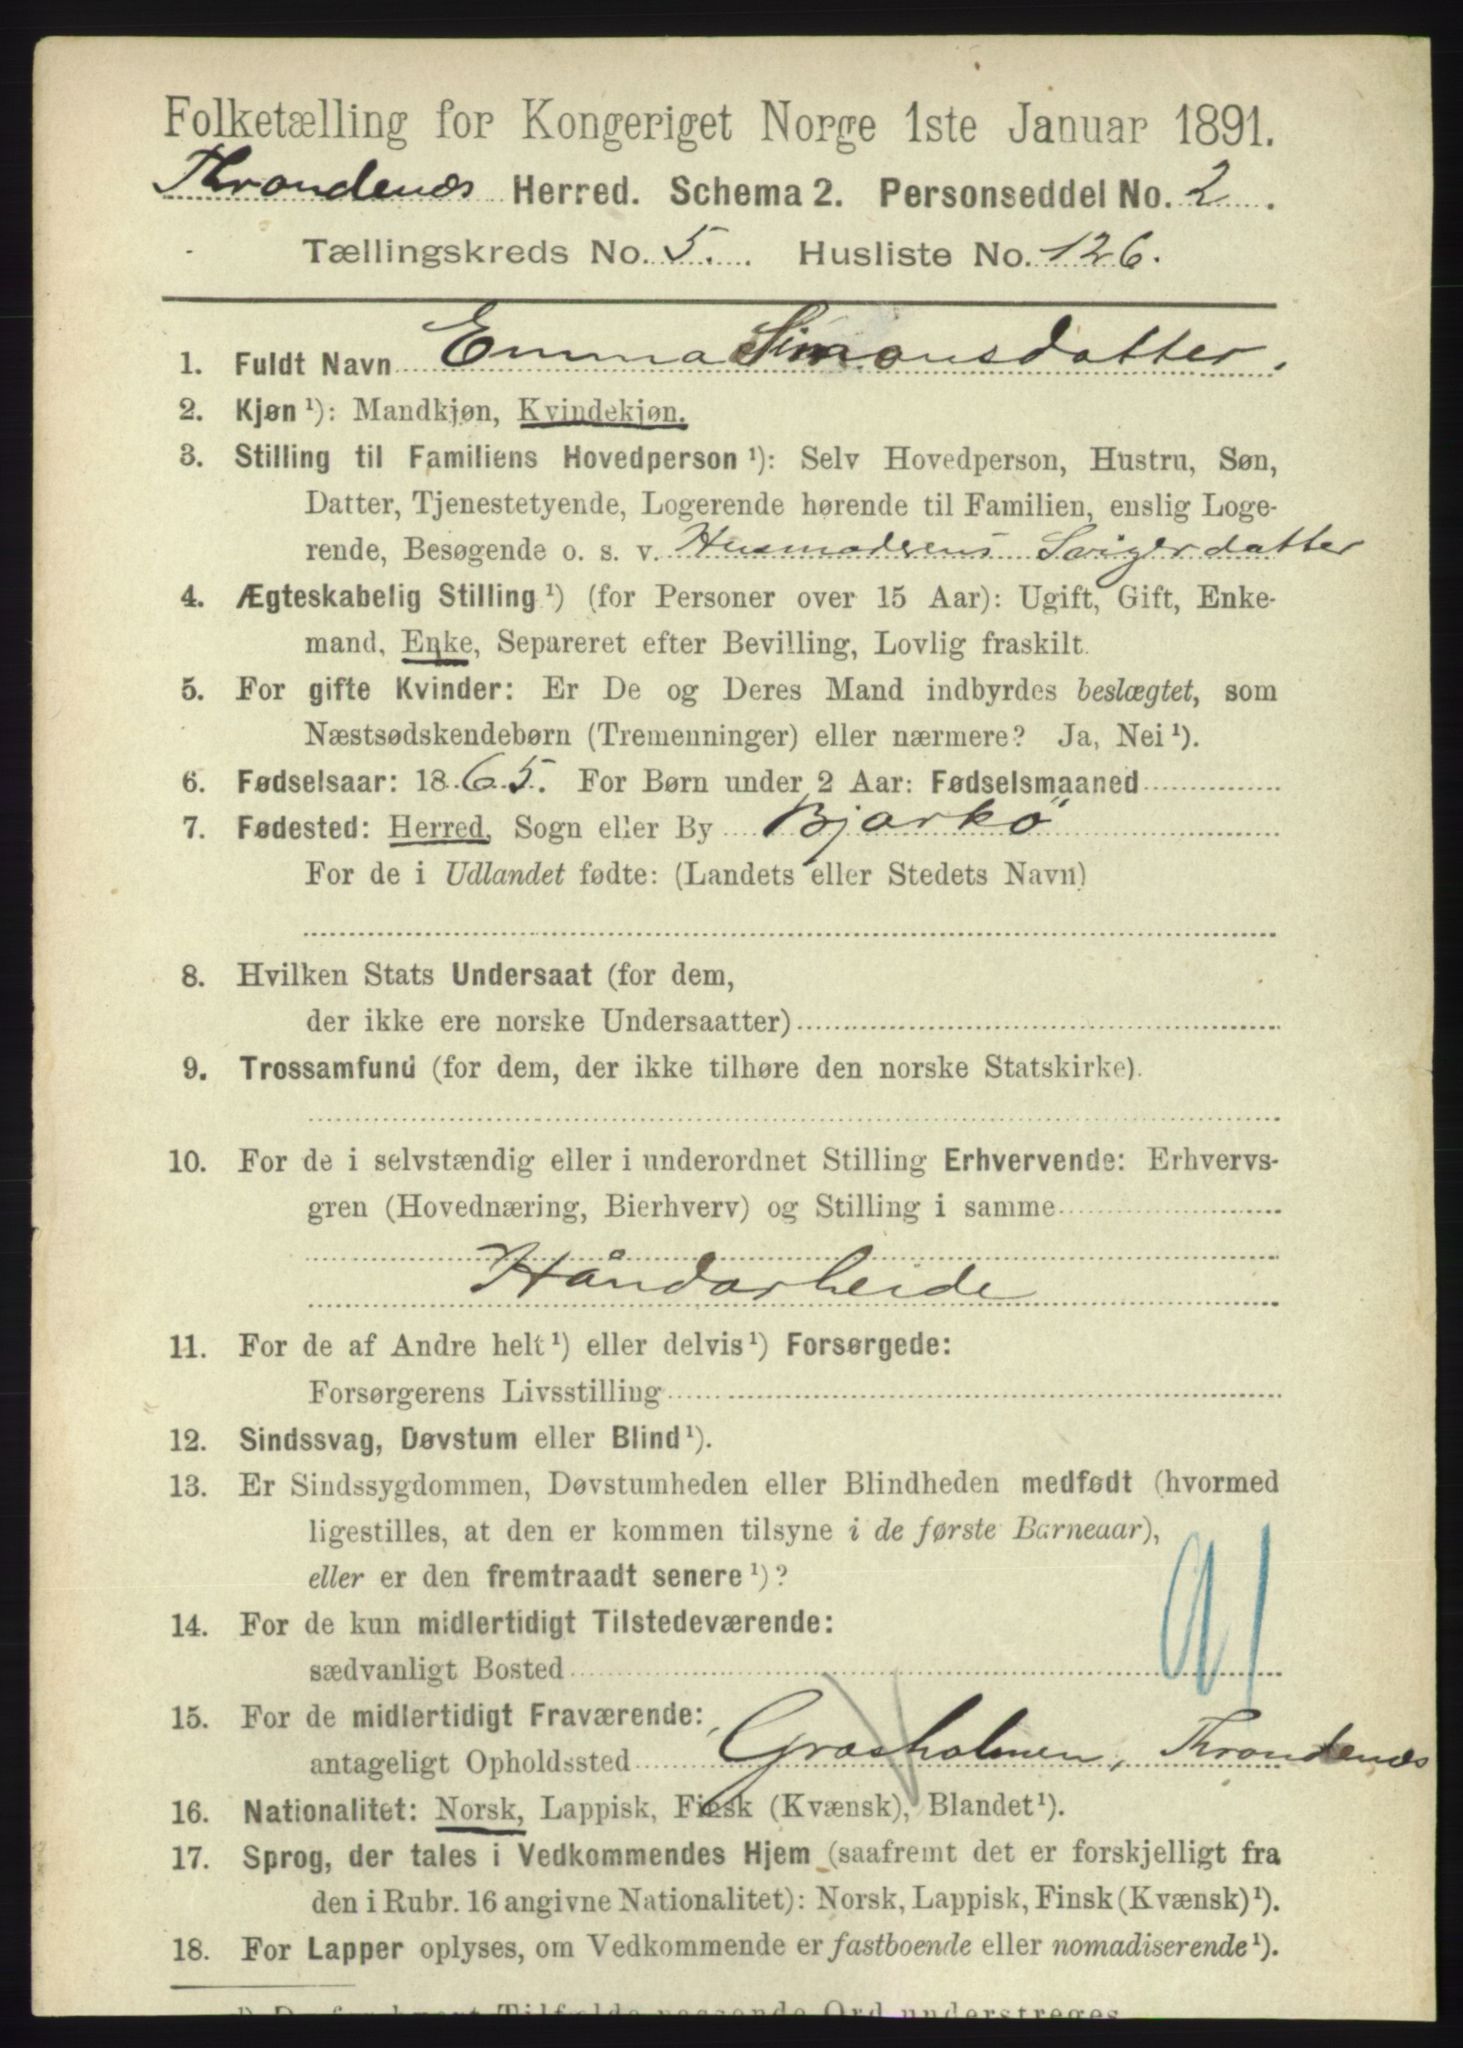 Folketælling for Kongeriget Norge 1ste Januar 1891.
Throndenæs Herred. Schema 2. Personseddel No. 2.
Tællingskreds No. 5. Husliste No. 126.
1. Fuldt Navn Emma Simonsdatter.
2. Kjøn ¹): Mandkjøn, Kvindekjøn.
3. Stilling til Familiens Hovedperson ¹): Selv Hovedperson, Hustru, Søn,
Datter, Tjenestetyende, Logerende hørende til Familien, enslig Loge-
rende, Besøgende o. s. v. Husmoderens Svigerdatter
4. Ægteskabelig Stilling ¹) (for Personer over 15 Aar): Ugift, Gift, Enke-
mand, Enke, Separeret efter Bevilling, Lovlig fraskilt.
5. For gifte Kvinder: Er De og Deres Mand indbyrdes beslægtet, som
Næstsødskendebørn (Tremenninger) eller nærmere? Ja, Nei ¹).
6. Fødselsaar: 1865. For Børn under 2 Aar: Fødselsmaaned
7. Fødested: Herred, Sogn eller By Bjarkö
For de i Udlandet fødte: (Landets eller Stedets Navn)
8. Hvilken Stats Undersaat (for dem,
der ikke ere norske Undersaatter)
9. Trossamfund (for dem, der ikke tilhøre den norske Statskirke).
10. For de i selvstændig eller i underordnet Stilling Erhvervende: Erhvervs-
gren (Hovednæring, Bierhverv) og Stilling i samme
Håndarbeide
11. For de af Andre helt ¹) eller delvis ¹) Forsørgede:
Forsørgerens Livsstilling
12. Sindssvag, Døvstum eller Blind ¹).
13. Er Sindssygdommen, Døvstumheden eller Blindheden medfødt (hvormed
ligestilles, at den er kommen tilsyne i de første Barneaar),
eller er den fremtraadt senere ¹)?
14. For de kun midlertidigt Tilstedeværende:
sædvanligt Bosted
15. For de midlertidigt Fraværende:
antageligt Opholdssted Grasholmen, Throndenæs
16. Nationalitet: Norsk, Lappisk, Finsk (Kvænsk), Blandet ¹).
17. Sprog, der tales i Vedkommendes Hjem (saafremt det er forskjelligt fra
den i Rubr. 16 angivne Nationalitet): Norsk, Lappisk, Finsk (Kvænsk) ¹).
18. For Lapper oplyses, om Vedkommende er fastboende eller nomadiserende ¹).